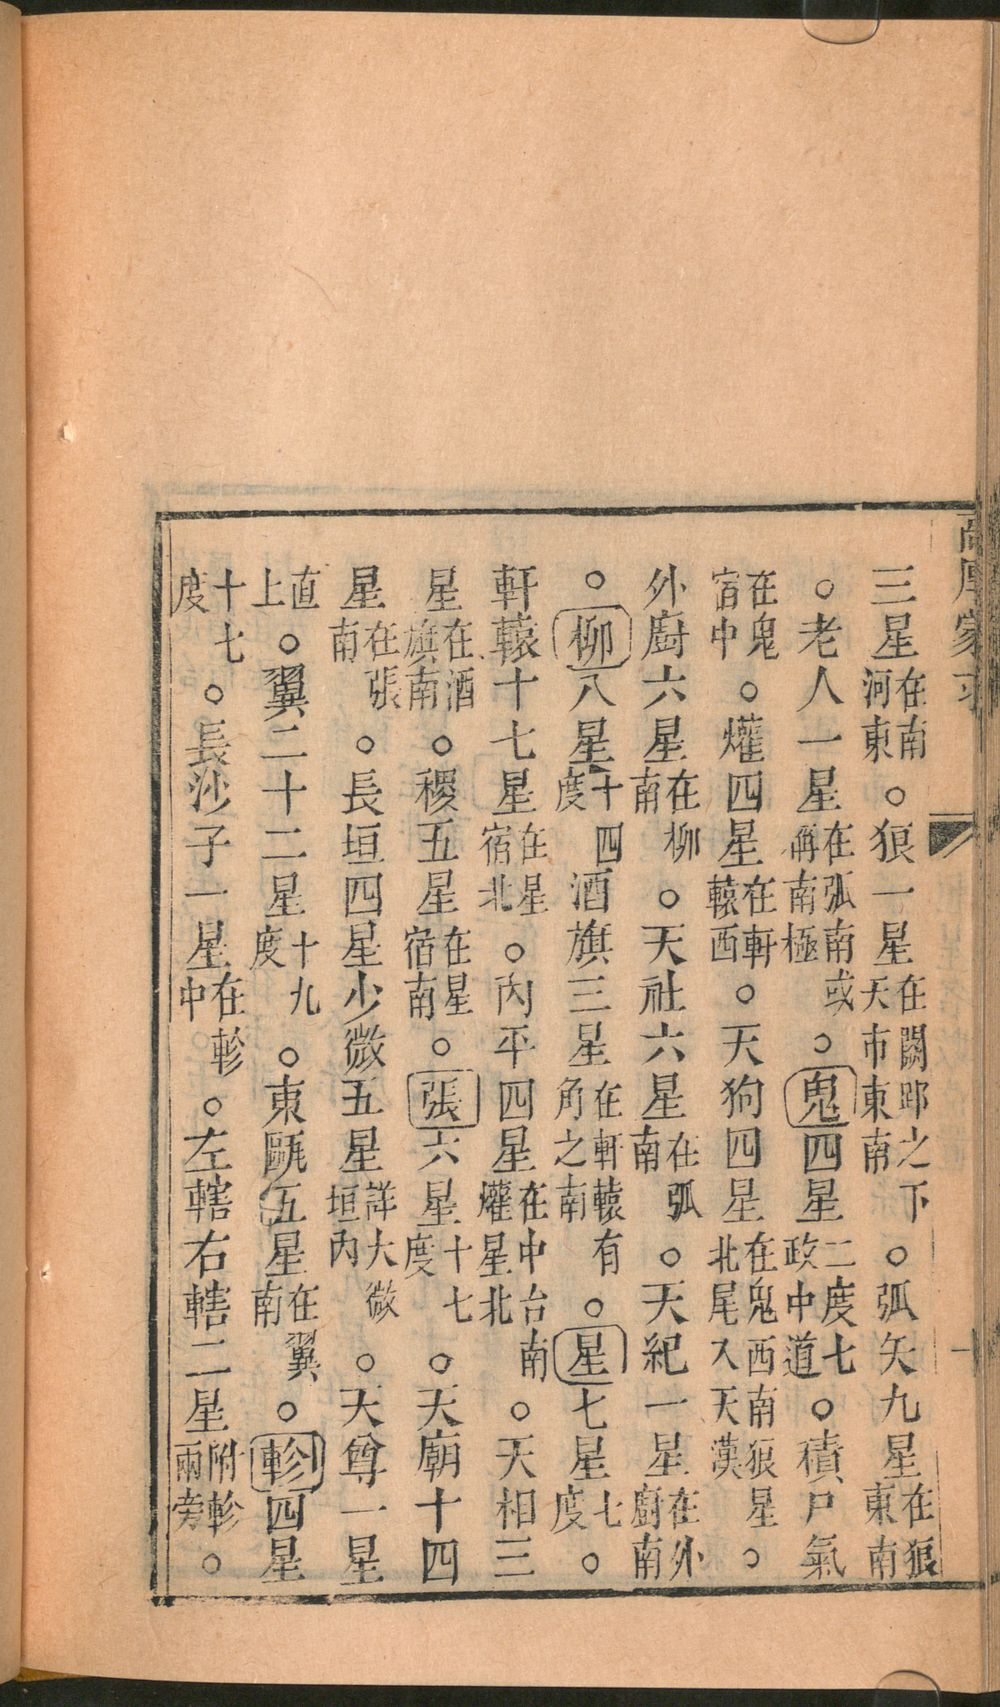 高厚蒙求
一
三星在南河東。狼一星在闕邱之下天市東南。弧矢九星在狼東南
。老人一星在弧南或稱南極。鬼四星二度七政中道。積尸氣
在鬼宿中。爟四星在軒轅西。天狗四星在鬼西南狼星北尾入天漢。
外廚六星在柳南。天社六星在弧南。天紀一星在外廚南
。柳八星十四度酒旗三星在軒轅有角之南。星七星七度。
軒轅十七星在星宿北。內平四星在中台南爟星北。天相三
星在酒旗南。稷五星在星宿南。張六星十七度。天廟十四
星在張南。長垣四星少微五星詳大微垣內。天尊一星
直上。翼二十二星十九度。東甌五星在翼南。軫四星
十七度。長沙子一星在軫中。左轄右轄二星附軫兩旁。